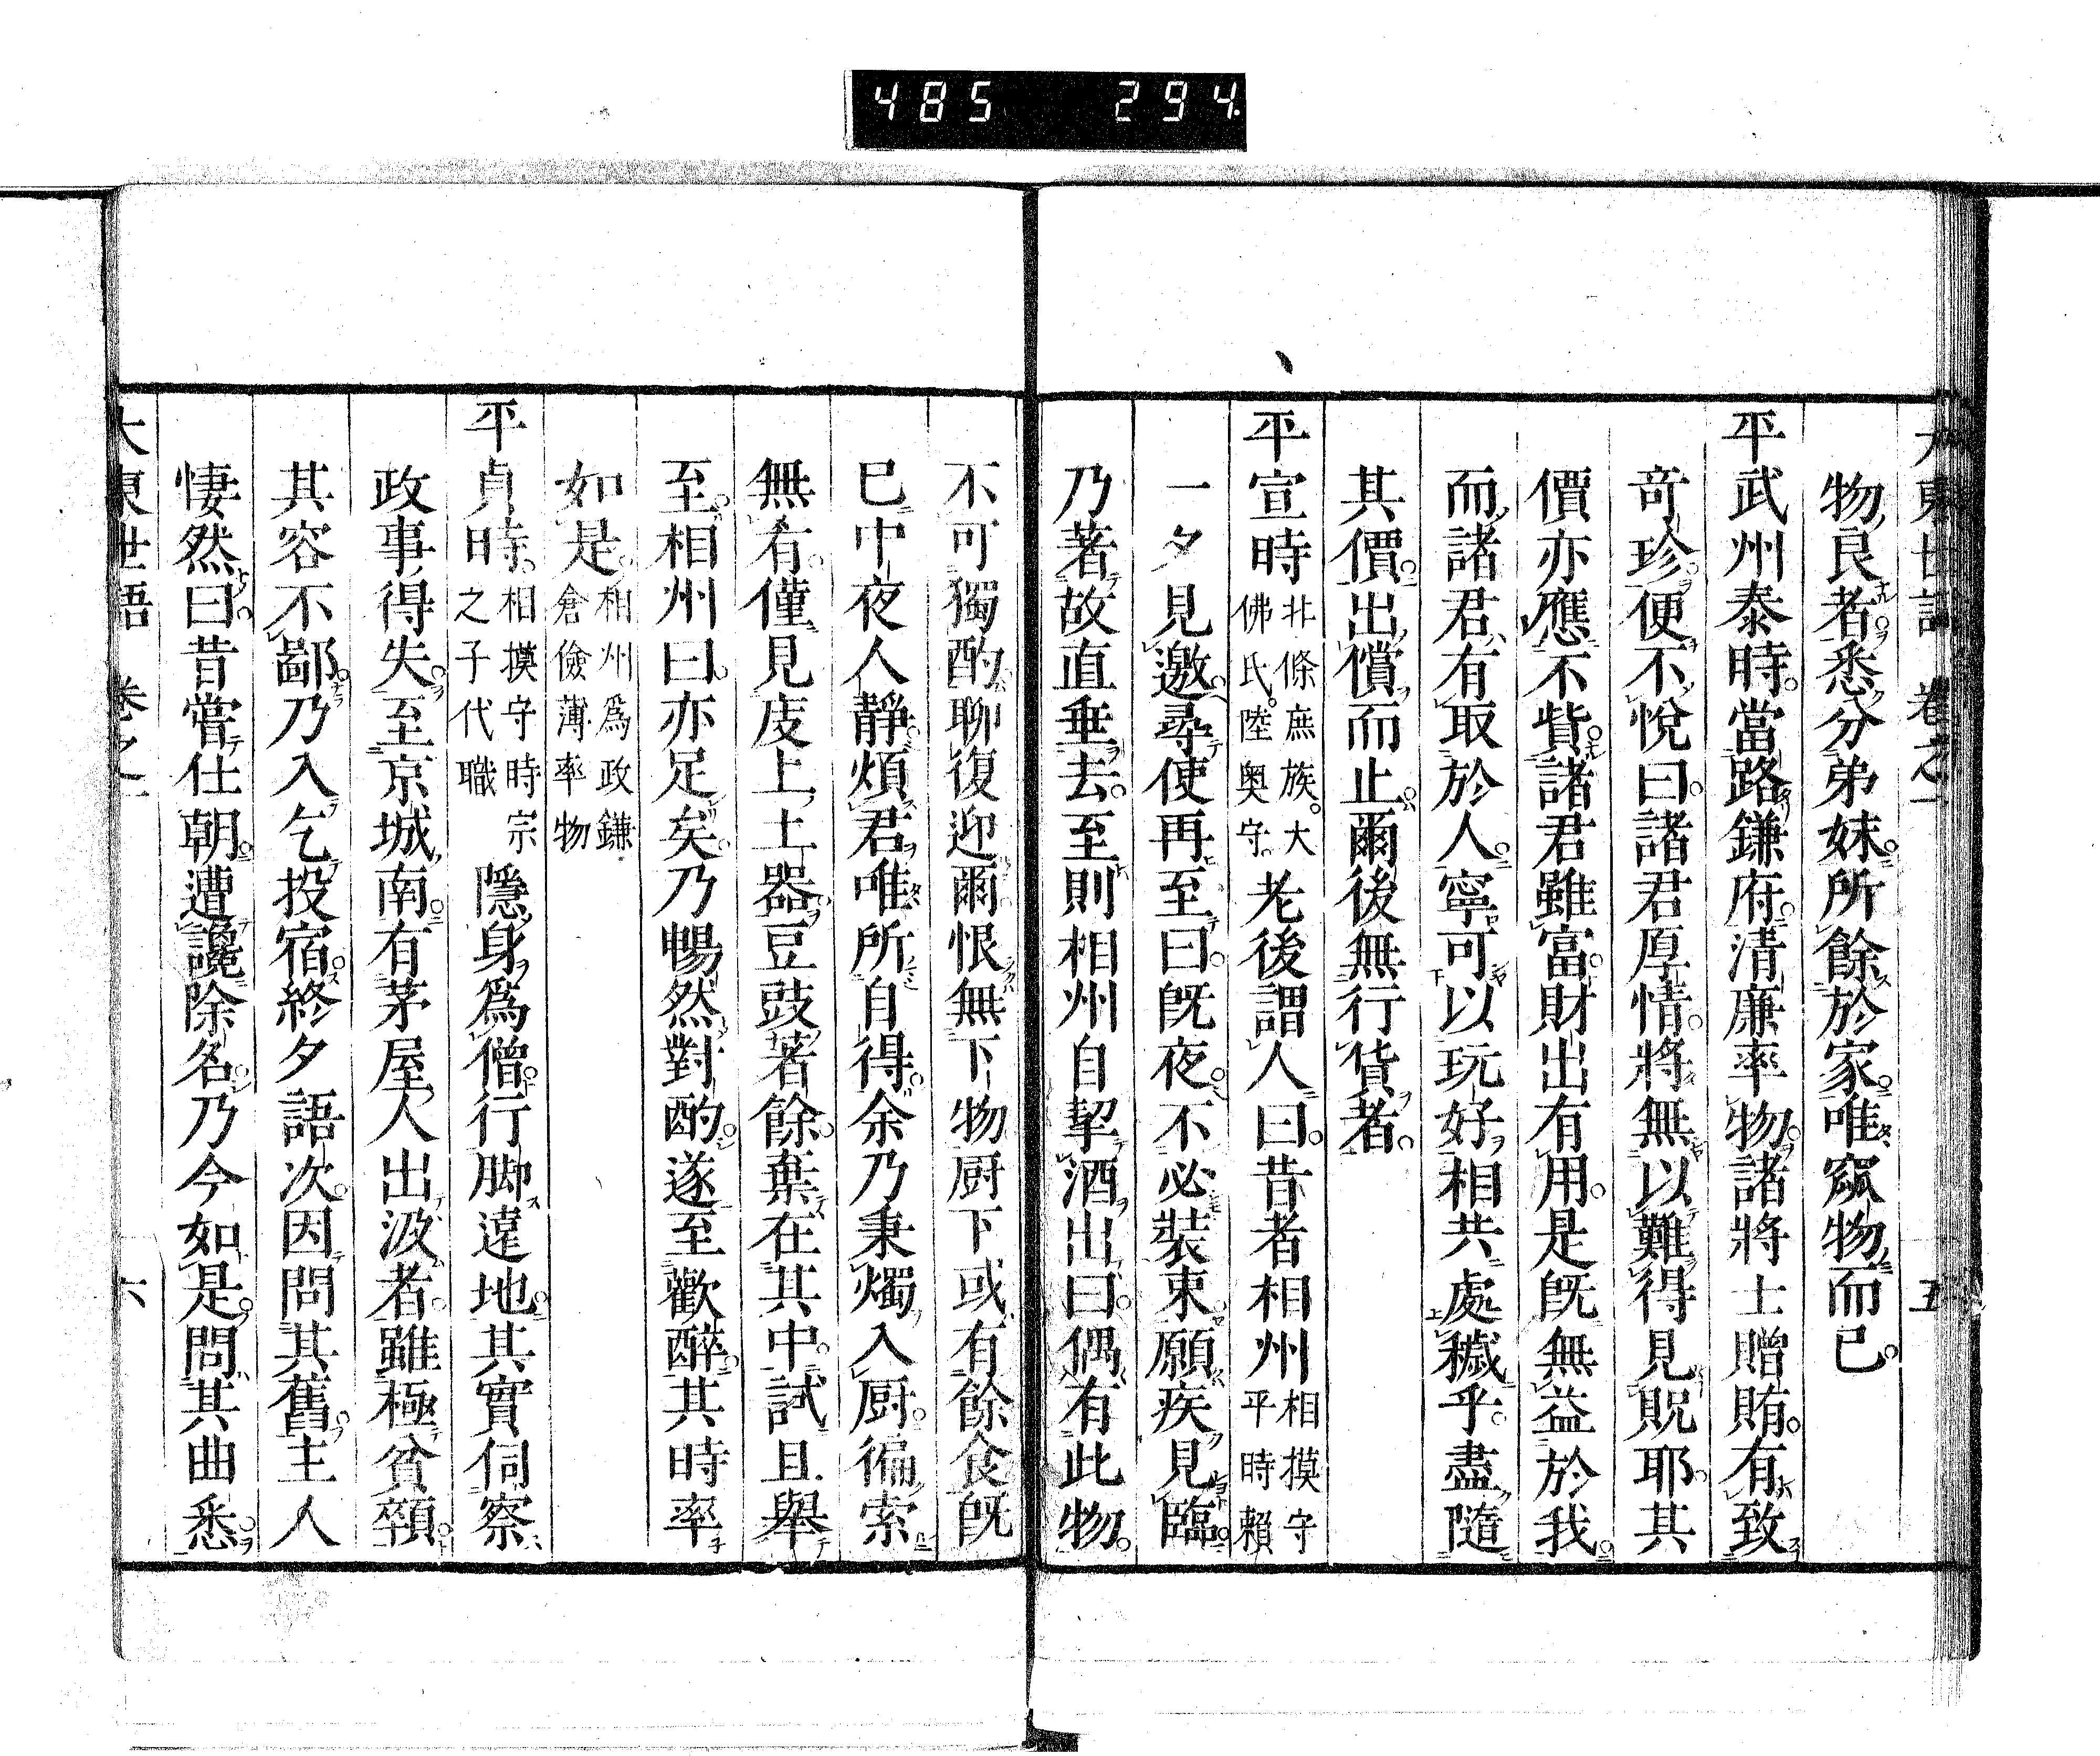 485 294
大東世語 卷之一 五
物良者悉分弟妹所餘於家唯窳物而已
平武州泰時當路鎌府清廉率物諸將士贈賄有致
竒珍便不悅曰諸君厚情將無以難得見貺耶其
價亦應不貲諸君雖富財出有用是旣無益於我
而諸君有取於人寧可以玩好相共處穢乎盡隨
其價出償而止爾後無行貨者
平宣時北條庶族大佛氏陸奥守老後謂人曰昔者相州相摸守平時賴
一夕見邀尋使再至曰旣夜不必裝束願疾見臨
乃著故直垂去至則相州自挈酒出曰偶有此物
不可獨酌聊復迎爾恨無下物厨下或有餘食旣
已中夜人靜煩君唯所自得余乃秉燭入厨徧索
無有僅見庋上土器豆豉著餘棄在其中試且舉
至相州曰亦足矣乃暢然對酌遂至歡醉其時率
如是相州爲政鎌倉儉薄率物
平貞時相摸守時宗之子代職隱身爲僧行脚違地其實伺察
政事得失至京城南有茅屋人出汲者雖極貧顇
其容不鄙乃入乞投宿終夕語次因問其舊主人
悽然曰昔嘗仕朝遭讒除名乃今如是問其曲悉
大東世語 卷之一 六